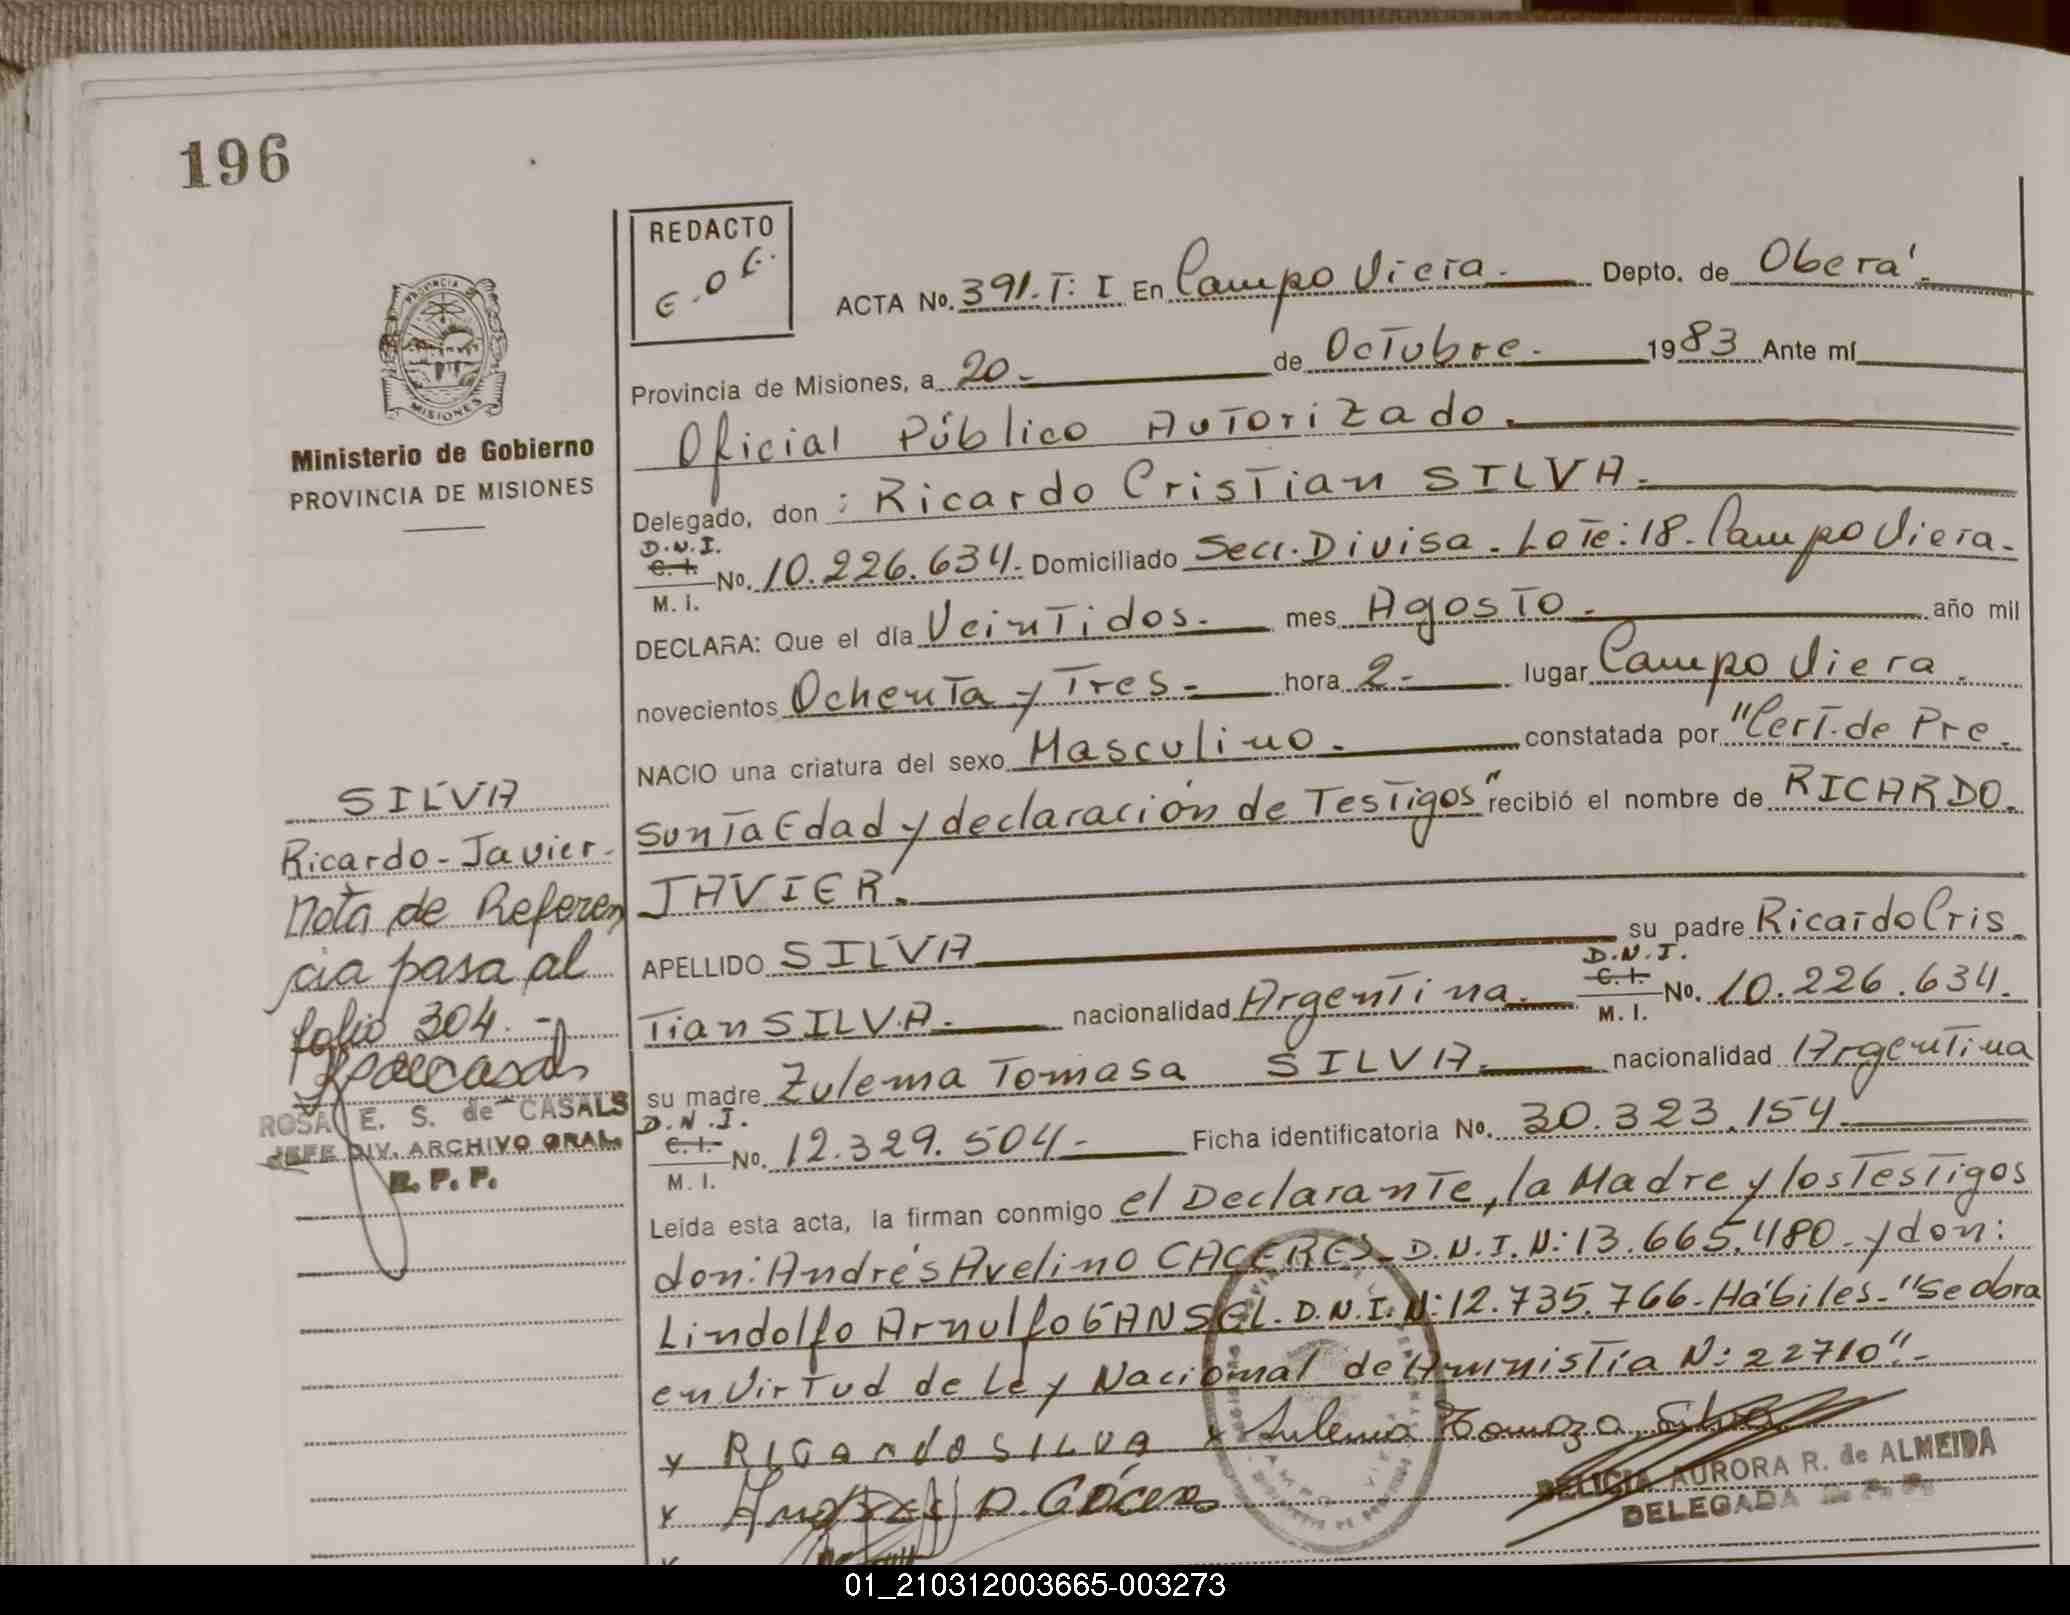 196
REDACTO
E.O.E.
ACTA No. 391. T: I En Campo Viera. Depto. de Oberá.
Provincia de Misiones, a 20 - de Octubre. 1983 Ante mí
Oficial Público Autorizado.
Delegado, don : Ricardo Cristian SILVA.
D.N.I.
C. I.
M. I. No. 10.226.634. Domiciliado Secc. Divisa. Lote: 18. Campo Viera.
DECLARA: Que el día Veintidos. mes Agosto. año mil
novecientos Ochenta y Tres - hora 2 - lugar Campo Viera.
NACIO una criatura del sexo Masculino. constatada por "Cert. de Pre
sunta Edad y declaración de Testigos" recibió el nombre de RICARDO
JAVIER.
APELLIDO SILVA su padre Ricardo Cris
tian SILVA. nacionalidad Argentina. D.N.I. C. I. M. I. No. 10.226.634.
su madre Zulema Tomasa SILVA. nacionalidad Argentina
D.N.I.
C. I.
M. I. No. 12.329.504 - Ficha identificatoria No. 30.323.154
Leída esta acta, la firman conmigo el Declarante, la Madre y los Testigos
don: Andrés Avelino CACERES. D.N.I. N: 13.665.480. y don:
Lindolfo Arnulfo GANSEL. D.N.I. N: 12.735.766. Hábiles. "Se obra
en Virtud de Ley Nacional de Amnistía N: 22710".
x RICARDO SILVA x Sulema Tomaza Silva
x Andres A. Cáceres
DELICIA AURORA R. de ALMEIDA
DELEGADA
PROVINCIA DE
MISIONES
Ministerio de Gobierno
PROVINCIA DE MISIONES
SILVA
Ricardo - Javier
Nota de Referen
cia pasa al
folio 304. -
ROSA E. S. de CASALS
JEFE DIV. ARCHIVO GRAL.
R. P. P.
01_210312003665-003273